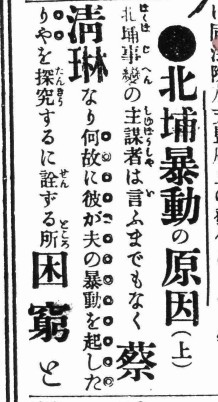 ●北埔暴動の原因(上)
北埔事變の主謀者は言ふまでもなく蔡
清琳なり何故に彼が夫の暴動を起した
りやを探究するに詮ずる所困窮と